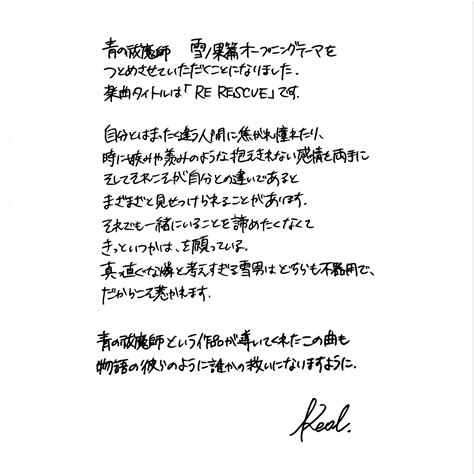 青の祓魔師　雪ノ果篇オープニングテーマを
つとめさせていただくことになりました.
楽曲タイトルは「RE RESCUE」です.
自分とはまったく違う人間に焦がれ憧れたり、
時に妬みや羨みのような抱えきれない感情を両手に
そしてそれこそが自分との違いであると
まざまざと見せつけられることがあります.
それでも一緒にいることを諦めたくなくて
きっといつかは、を願っている.
真っ直ぐな燐と考えすぎる雪男はどちらも不器用で、
だからこそ惹かれます.
青の祓魔師という作品が導いてくれたこの曲も
物語の彼らのように誰かの救いになりますように.
Reol.